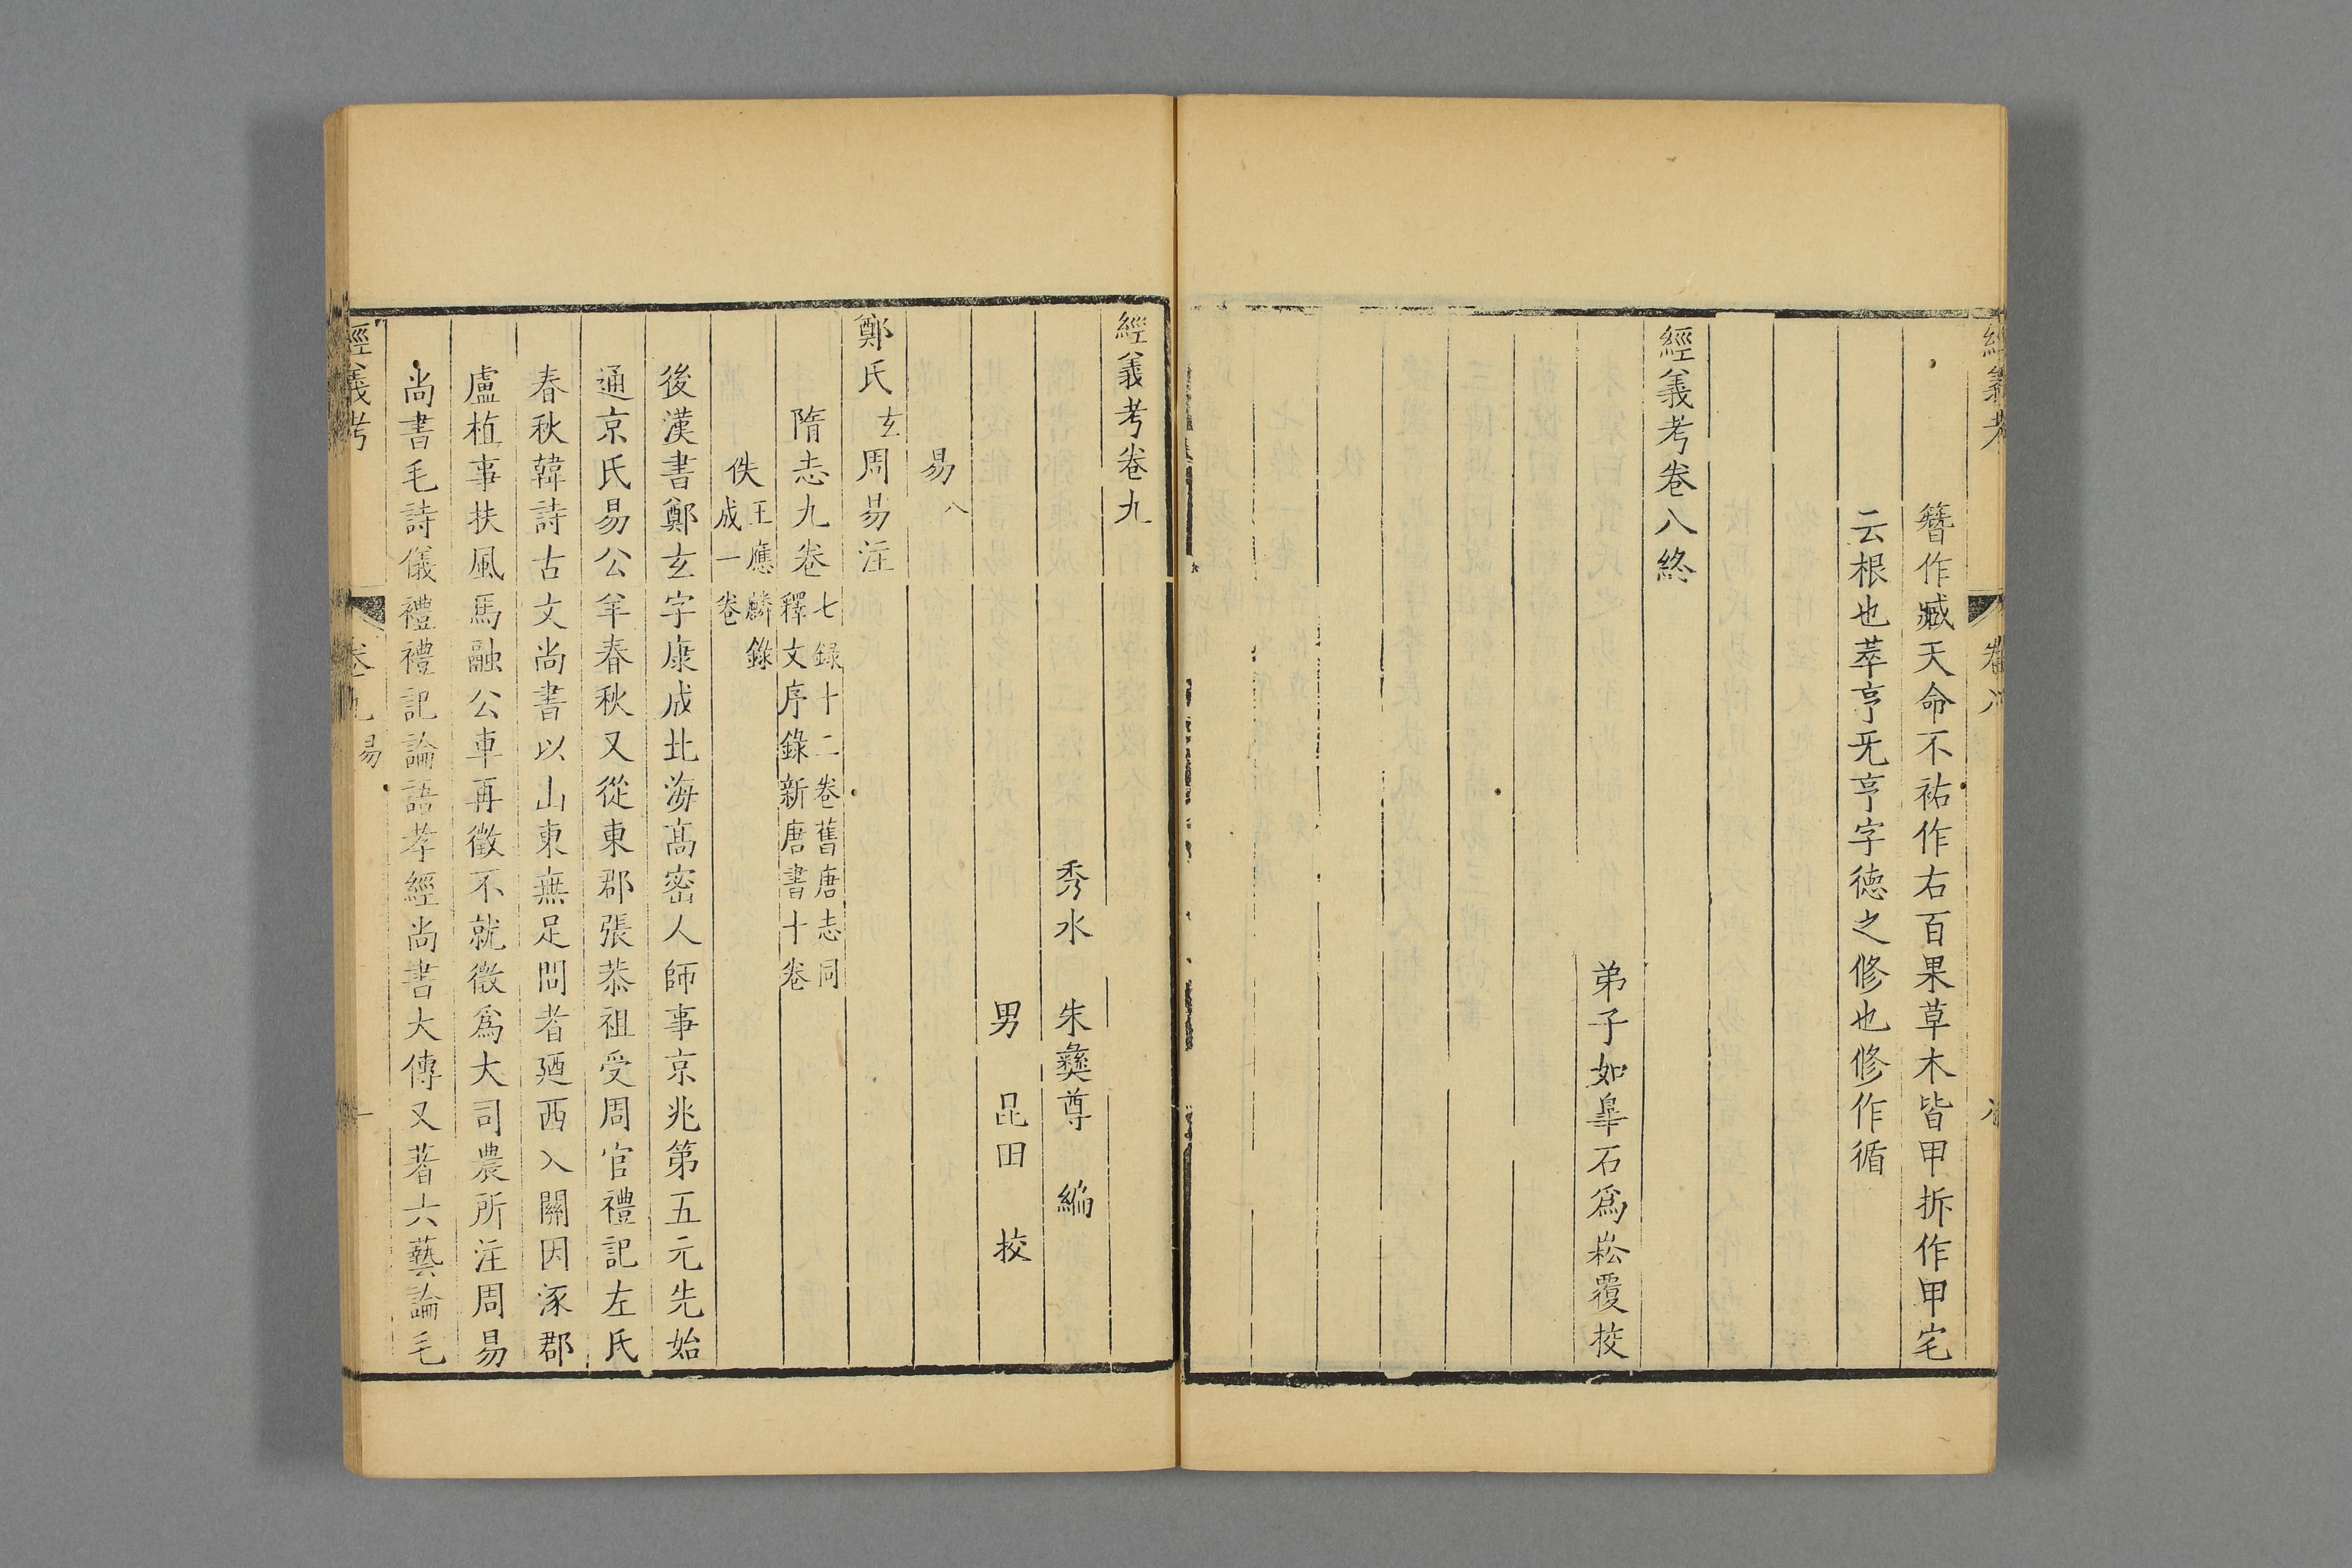 簪作臧天命不祐作右百果草木皆甲拆作甲宅
云根也萃亨旡亨字徳之修也修作循
經義考卷八終
弟子如臯石爲崧覆挍
經義考卷九
秀水 朱彝尊 編
男 昆田 挍
易八
鄭氏玄周易注
隋志九卷七録十二卷舊唐志同
釋文序錄新唐書十卷
佚王應麟錄
成一卷
後漢書鄭玄字康成北海髙密人師事京兆第五元先始
通京氏易公羊春秋又從東郡張恭祖受周官禮記左氏
春秋韓詩古文尚書以山東無足問者廼西入關因涿郡
盧植事扶風馬融公車再徵不就徵爲大司農所注周易
尚書毛詩儀禮禮記論語孝經尚書大傳又著六藝論毛
經義考 卷九 易 一